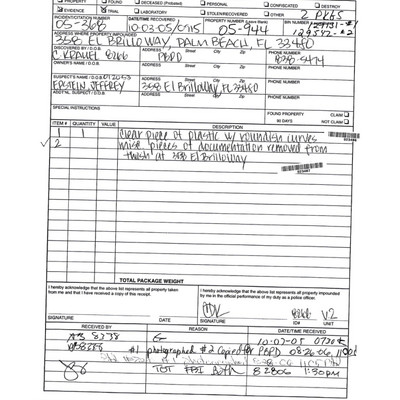 PROPERTY FOUND DECEASED (Probate) PERSONAL CONFISCATED DESTROY
EVIDENCE TRIAL LABORATORY STOLEN/RECOVERED OTHER 2 PKGS
INCIDENT/CITATION NUMBER DATE/TIME RECOVERED PROPERTY NUMBER BIN NUMBER
05-368 10-03-05/0715 05-944 #1
129542-#2
ADDRESS WHERE PROPERTY IMPOUNDED
358 El BRILLOWAY, PALM BEACH, FL 33480
DISCOVERED BY / D.O.B. Street City PHONE NUMBER
PBPD 838-5474
OWNER'S NAME / D.O.B. Street City PHONE NUMBER
SUSPECT'S NAME / D.O.B. Street City PHONE NUMBER
EPSTEIN, JEFFREY 358 El Brilloway, Fl 33480
ADD'TL SUSPECT / D.O.B. Street City PHONE NUMBER
SPECIAL INSTRUCTIONS FOUND PROPERTY CLAIM
90 DAYS DO NOT CLAIM
ITEM # QUANTITY VALUE DESCRIPTION
1 1 Clear piece of plastic w/ roundish curves
2 misc. pieces of documentation removed from
trash at 358 El Brilloway
TOTAL PACKAGE WEIGHT
I hereby acknowledge that the above list represents all property taken
from me and that I have received a copy of this receipt.
I hereby acknowledge that the above list represents all property impounded
by me in the official performance of my duty as a police officer.
V2
SIGNATURE DATE SIGNATURE ID# UNIT
RECEIVED BY REASON DATE/TIME RECEIVED
8338 10-03-05 0730
#1 photographed #2 Copied for PBPD 08-26-06,
FBI 82806 1:30pm